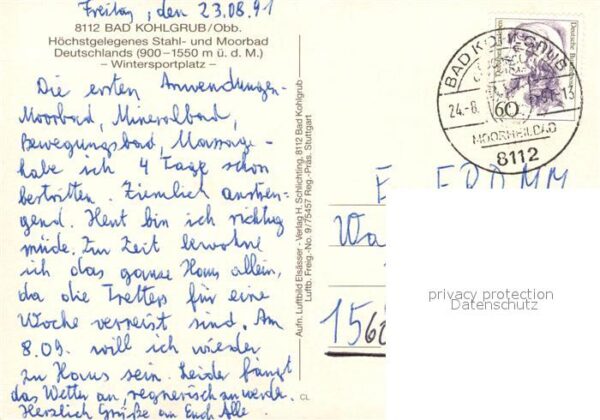 Freitag, den 23.08.91
8112 BAD KOHLGRUB/Obb.
Höchstgelegenes Stahl- und Moorbad
Deutschlands (900–1550 m ü. d. M.)
– Wintersportplatz –
Die ersten Anwendungen -
Moorbad, Mineralbad,
Bewegungsbad, Massage -
habe ich 4 Tage schon
bestritten. Ziemlich anstren-
gend. Heut bin ich richtig
müde. Zur Zeit bewohne
ich das ganze Haus allein,
da die Tretters für eine
Woche verreist sind. Am
8.09. will ich wieder
zu Haus sein. Leider fängt
das Wetter an, regnerisch zu werden.
Herzlich Grüße an Euch Alle
Aufn. Luftbild Elsässer - Verlag H. Schlichting, 8112 Bad Kohlgrub
Luftb. Freig.-No. 9/75457 Reg.-Präs. Stuttgart
CL
Deutsche
60
BAD KOHLGRUB
24.-8.
13
MOORHEILBAD
8112
Wa
156
privacy protection
Datenschutz